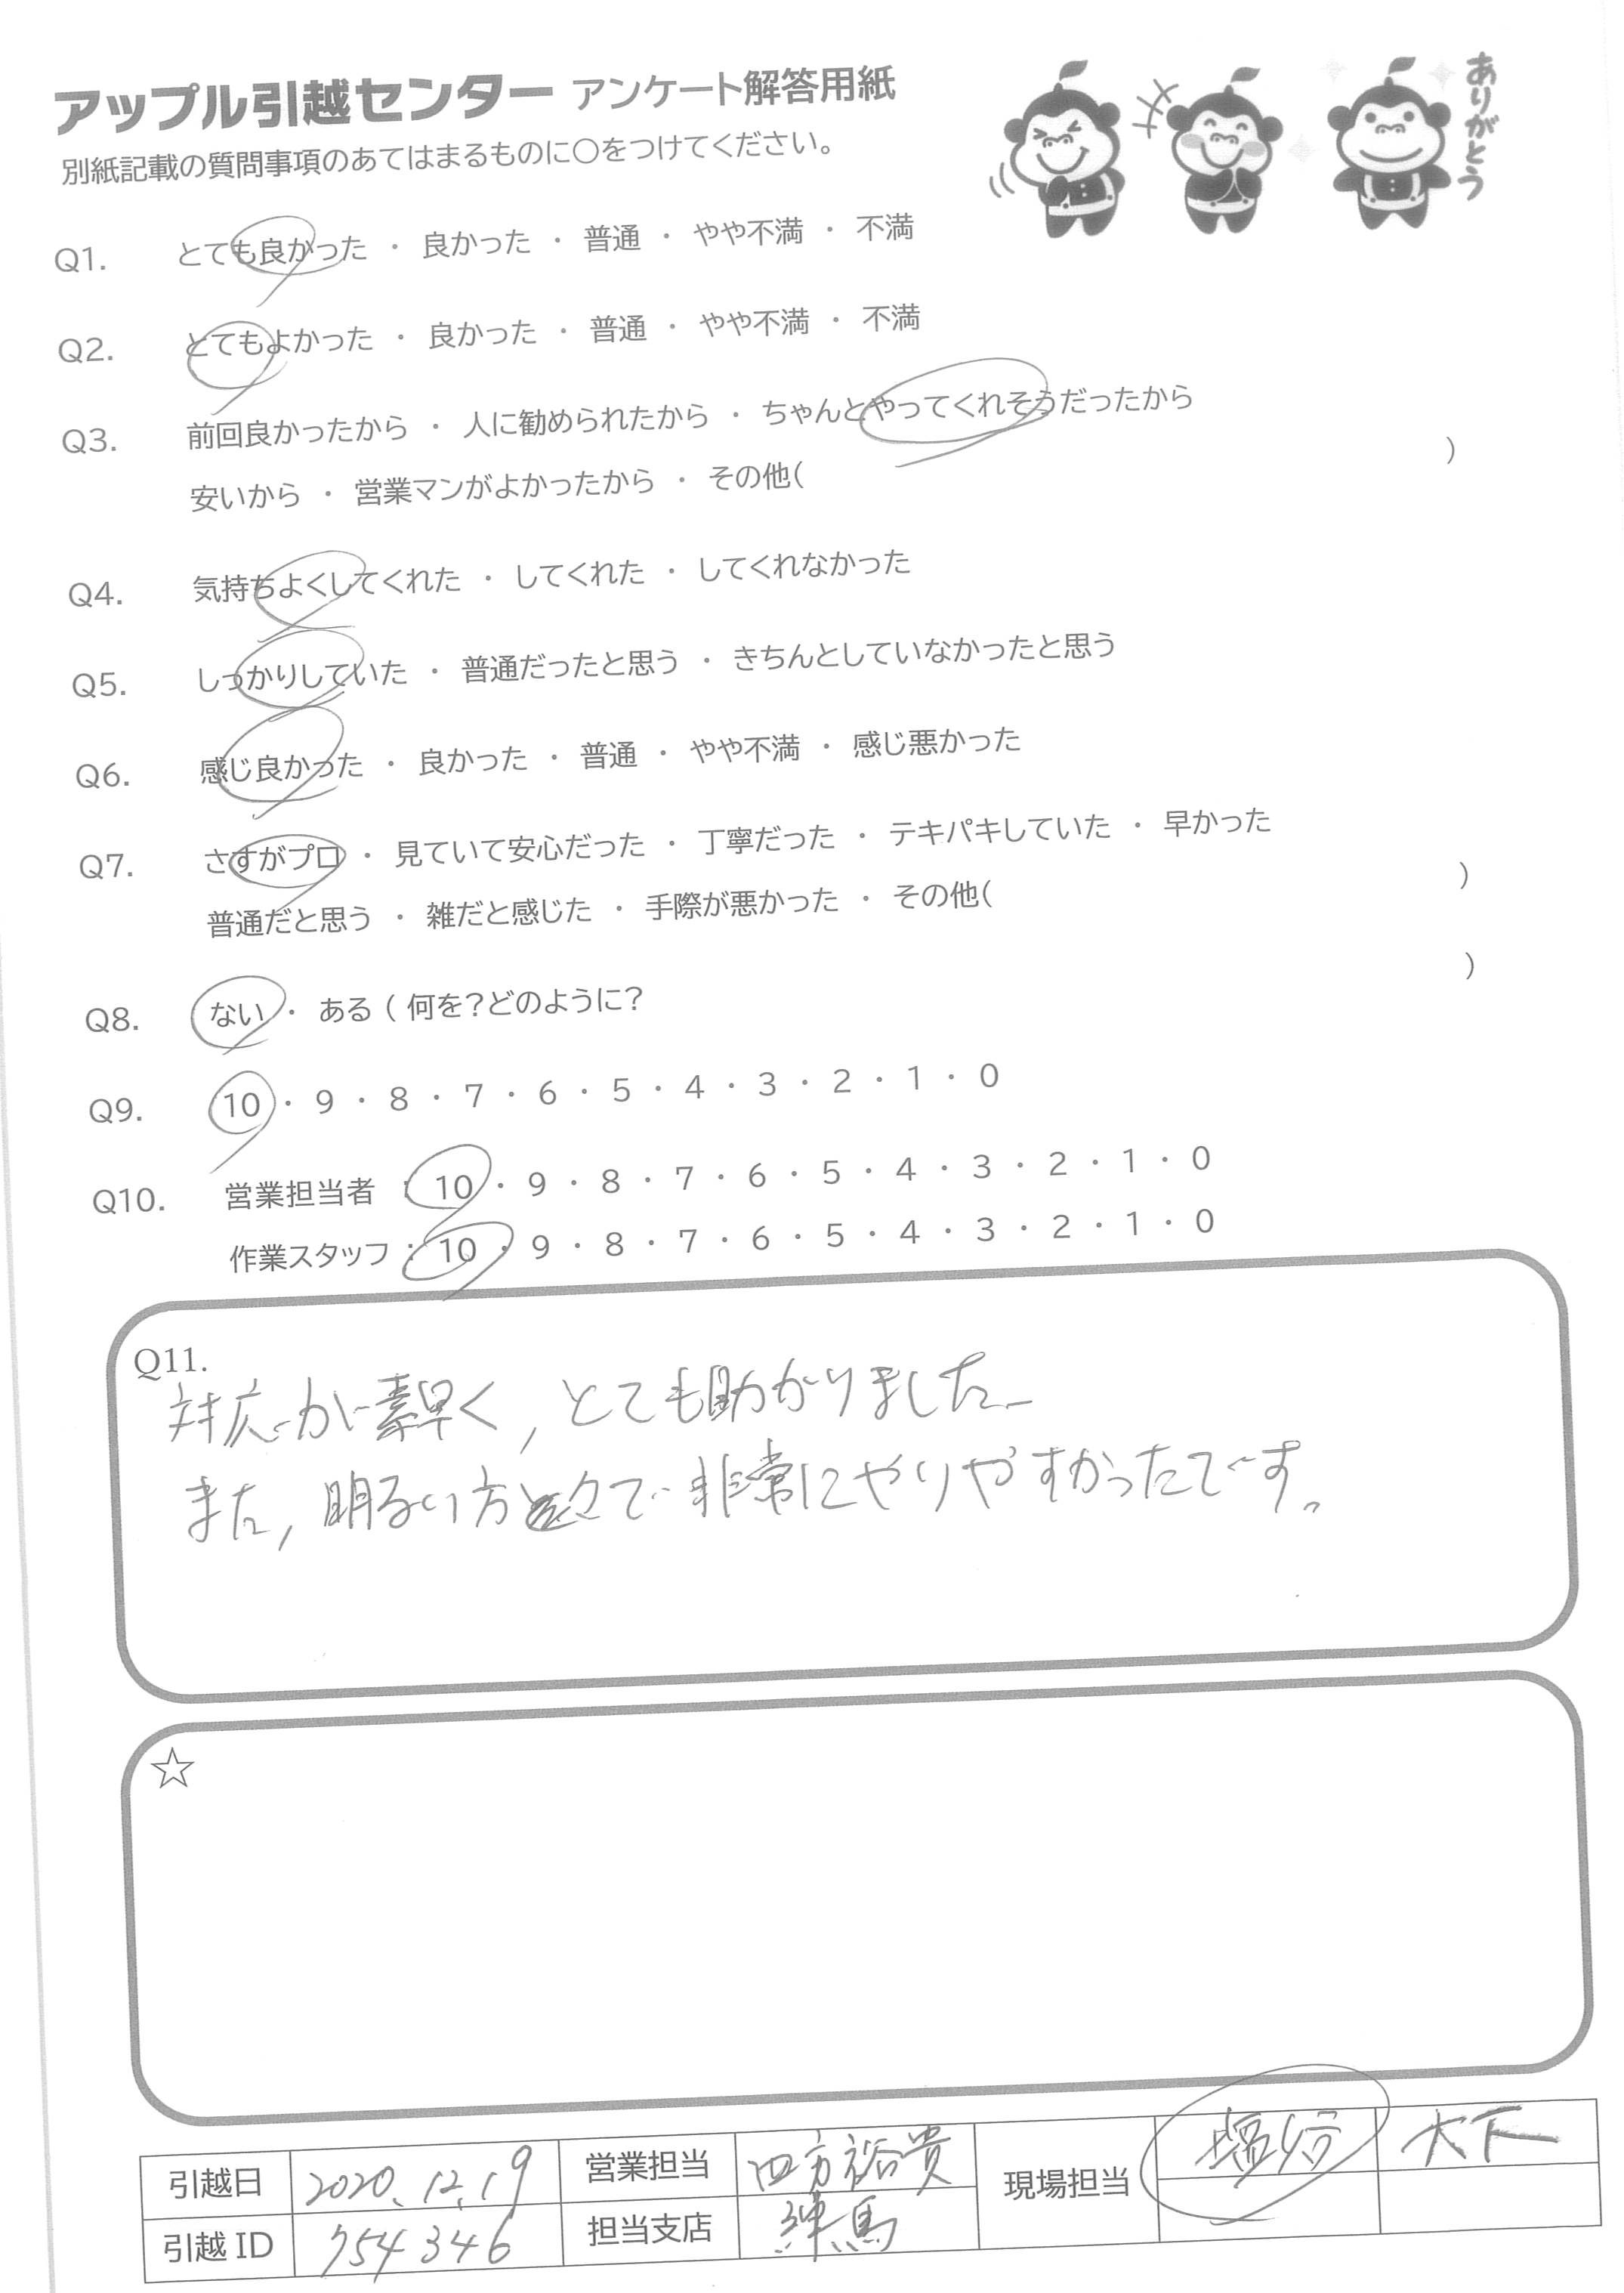 アップル引越センター アンケート解答用紙
ありがとう
別紙記載の質問事項のあてはまるものに○をつけてください。
Q1. とても良かった ・ 良かった ・ 普通 ・ やや不満 ・ 不満
Q2. とてもよかった ・ 良かった ・ 普通 ・ やや不満 ・ 不満
Q3. 前回良かったから ・ 人に勧められたから ・ ちゃんとやってくれそうだったから
安いから ・ 営業マンがよかったから ・ その他( )
Q4. 気持ちよくしてくれた ・ してくれた ・ してくれなかった
Q5. しっかりしていた ・ 普通だったと思う ・ きちんとしていなかったと思う
Q6. 感じ良かった ・ 良かった ・ 普通 ・ やや不満 ・ 感じ悪かった
Q7. さすがプロ ・ 見ていて安心だった ・ 丁寧だった ・ テキパキしていた ・ 早かった
普通だと思う ・ 雑だと感じた ・ 手際が悪かった ・ その他( )
Q8. ない ・ ある ( 何を？どのように？ )
Q9. 10 ・ 9 ・ 8 ・ 7 ・ 6 ・ 5 ・ 4 ・ 3 ・ 2 ・ 1 ・ 0
Q10. 営業担当者 : 10 ・ 9 ・ 8 ・ 7 ・ 6 ・ 5 ・ 4 ・ 3 ・ 2 ・ 1 ・ 0
作業スタッフ : 10 ・ 9 ・ 8 ・ 7 ・ 6 ・ 5 ・ 4 ・ 3 ・ 2 ・ 1 ・ 0
Q11.
対応が素早く, とても助かりました。
また, 明るい方々で非常にやりやすかったです。
☆
引越日 2020.12.19 営業担当 四方裕貴 現場担当 大下
引越 ID 754346 担当支店 練馬